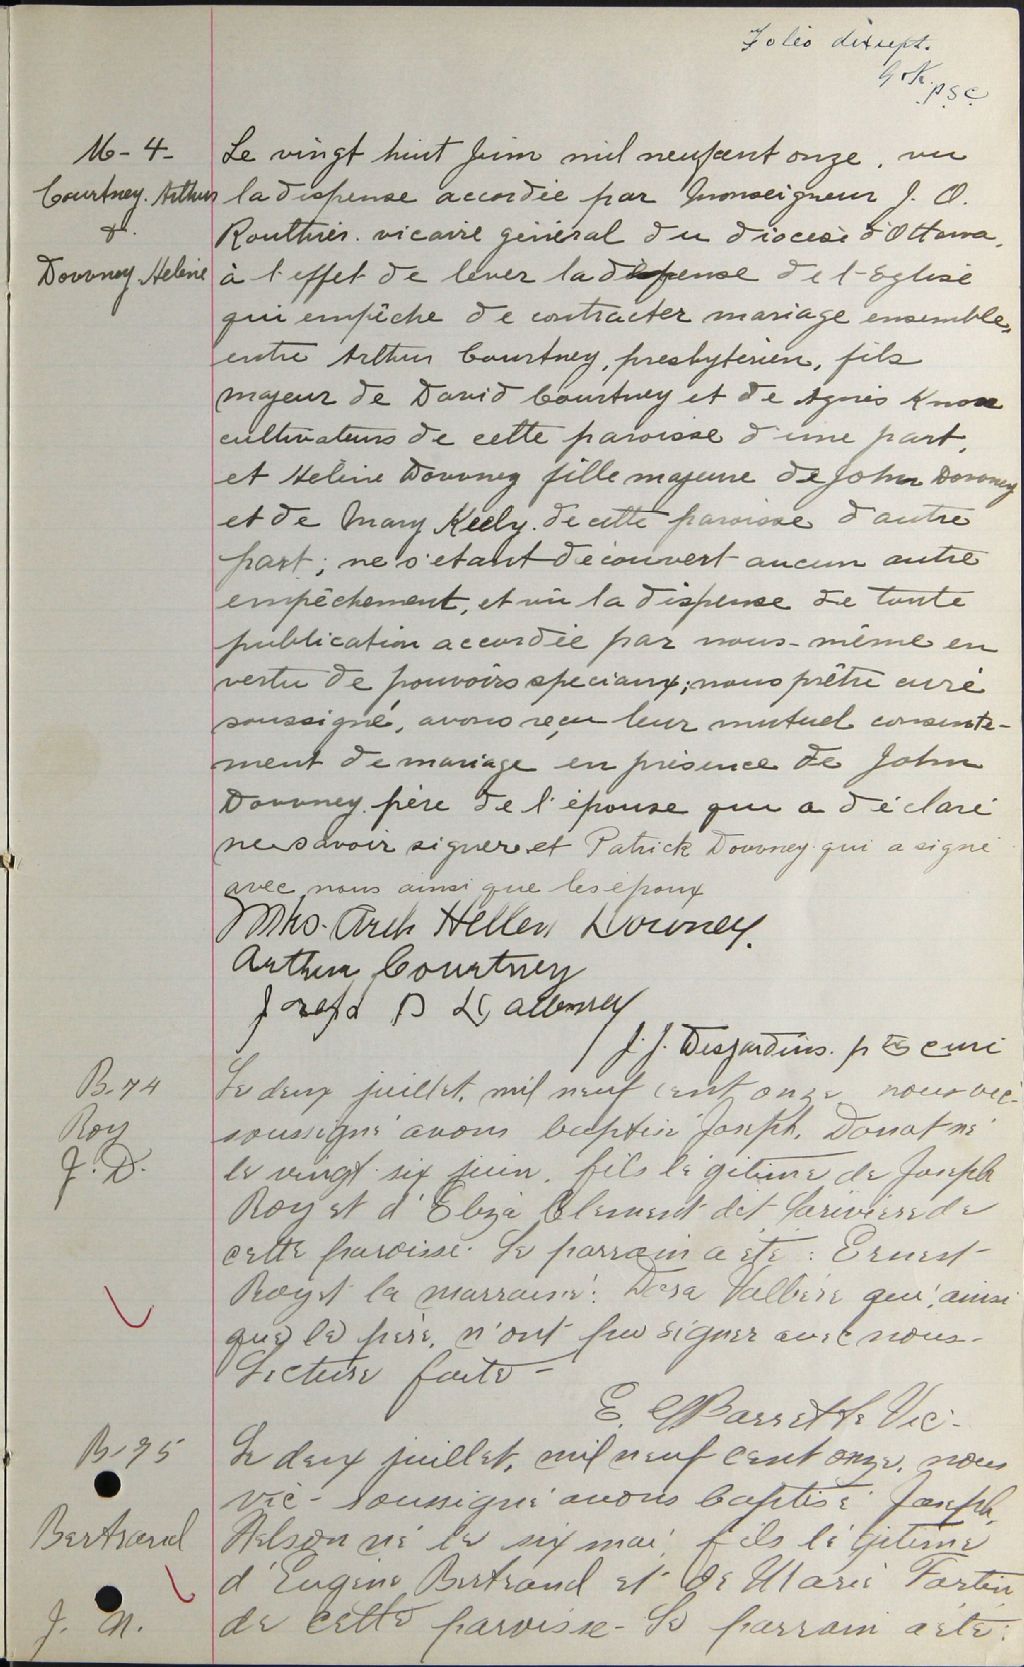 Folio dixsept.
P.S.C.
M-4-
Courtney. Arthur
&.
Downey. Helène
Le vingt huit Juin mil neufcent onze, vu
la dispense accordée par Monseigneur J. O.
Routhier. vicaire général du diocèse d'Ottawa,
à l'effet de lever la défense de l'Eglise
qui empêche de contracter mariage ensemble,
entre Arthur Courtney, presbytérien, fils
majeur de David Courtney et de Agnès Knox
cultivateurs de cette paroisse d'une part,
et Helène Downey fille majeure de John Downey
et de Mary Keely. de cette paroisse d'autre
part; ne s'etant découvert aucun autre
empêchement, et vu la dispense de toute
publication accordée par nous-même en
vertu de pouvoirs speciaux; nous prêtre curé
soussigné, avons reçu leur mutuel consente-
ment de mariage en présence de John
Downey. père de l'épouse qui a déclaré
ne savoir signer et Patrick Downey qui a signé
avec nous ainsi que les époux
Mrs. Arch Hellen Downey.
Arthur Courtney
J. J. Desjardins. ptre curé
B.74
Roy
J. D.
Le deux juillet, mil neuf cent onze nous vic-
soussigné avons baptisé Joseph, Donat né
le vingt-six juin. fils légitime de Joseph
Roy et d'Eliza Clement dit Larivière de
cette paroisse. Le parrain a été: Ernest
Roy et la marraine: Dora Vallière qui, ainsi
que le père, n'ont pu signer avec nous-
Lecture faite-
E. Barrette Vic-
B.75
Bertrand
J. N.
Le deux juillet, mil neuf cent onze, nous
vic- soussigné avons baptisé Joseph,
Nelson né le six mai, fils légitime
d'Eugène Bertrand et de Marie Fortin
de cette paroisse- Le parrain a été: